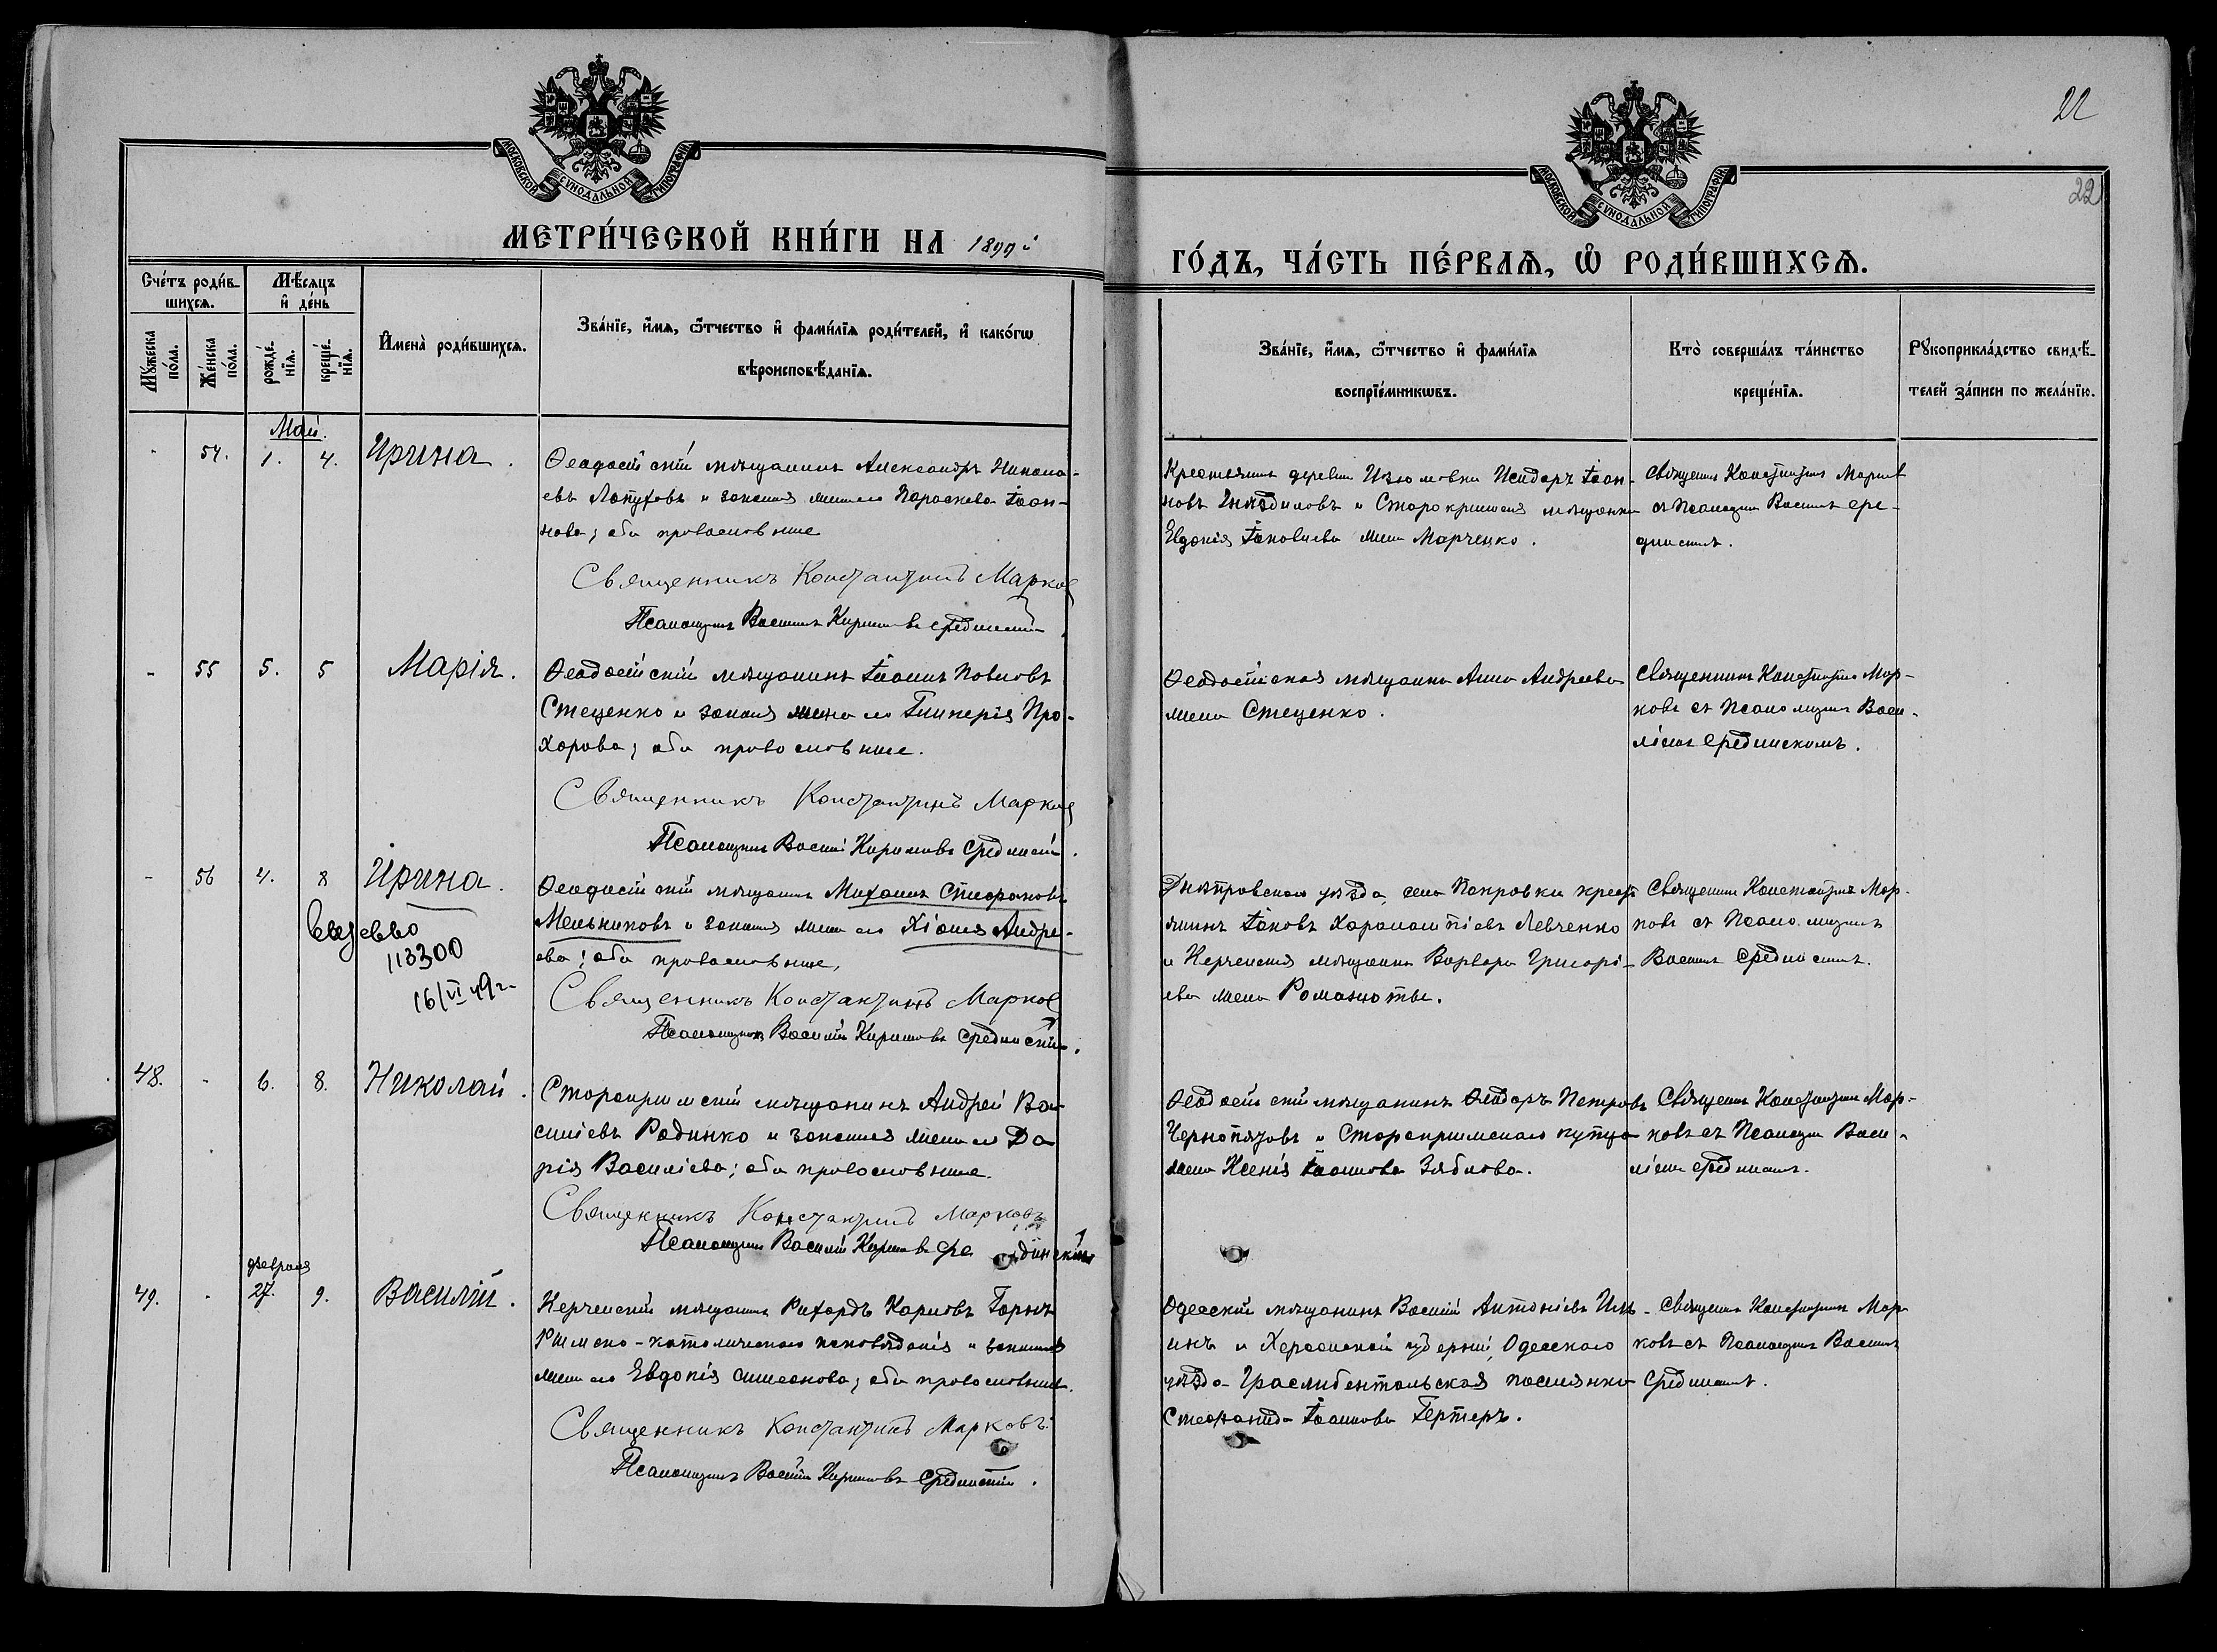 22
22
МОСКОВСКОЙ СѴНОДАЛЬНОЙ ТИПОГРАФІИ
МЕТРИ́ЧЕСКОЙ КНИ́ГИ НА 1899й
МОСКОВСКОЙ СѴНОДАЛЬНОЙ ТИПОГРАФІИ
ГО́ДЪ, ЧА́СТЬ ПЕ́РВАѦ, Ѡ҆ РОДИ́ВШИХСѦ.
Сче́тъ роди́в-
шихсѧ.
Мѣ́сѧцъ
и҆ де́нь
Мꙋ́жеска
по́ла.
Же́нска
по́ла.
рожде́-
нїѧ.
креще́-
нїѧ.
И҆мена̀ роди́вшихсѧ.
Зва́нїе, и҆́мѧ, ѻ҆́тчество и҆ фами́лїѧ роди́телей, и҆ како́гѡ
вѣроисповѣ́данїѧ.
Зва́нїе, и҆́мѧ, ѻ҆́тчество и҆ фами́лїѧ
воспрїе́мникѡвъ.
Кто̀ соверша́лъ та́инство
креще́нїѧ.
Рꙋкоприкла́дство свидѣ́-
телей за́писи по жела́нїю.
Май.
- 54. 1. 4. Ирина.
Ѳеодосійскій мѣщанинъ Александръ Никола-
евъ Лопуховъ и законная жена его Параскева Іоан-
нова; оба православные
Священникъ Константинъ Марковъ
Псаломщикъ Василій Кирилловъ Срединскій
Крестьянинъ деревни Изюмовки Исидоръ Іоан-
новъ Гнѣдиловъ и Старокрымская мѣщанка
Евдокія Іаковлева жена Марченко.
Священникъ Константинъ Марковъ
съ Псаломщик. Василіемъ Сре-
динскимъ.
- 55 5. 5 Марія.
Ѳеодосійскій мѣщанинъ Іоаннъ Павловъ
Стеценко и законная жена его Гликерія Про-
хорова; оба православные.
Священникъ Константинъ Марковъ
Псаломщикъ Василій Кирилловъ Срединскій.
Ѳеодосійская мѣщанка Анна Андреева
жена Стеценко.
Священникъ Константинъ Мар-
ковъ съ Псаломщик. Васи-
ліемъ Срединскимъ.
- 56 4. 8 Ирина.
113300
16/VI 49 г.
Ѳеодосійскій мѣщанинъ Михаилъ Стефановъ
Мельниковъ и законная жена его Хіонія Андре-
ева; оба православные,
Священникъ Константинъ Марковъ
Псаломщикъ Василій Кирилловъ Срединскій.
Днѣпровскаго уѣзда, села Покровки крест-
янинъ Іаковъ Харалампіевъ Левченко
и Керченская мѣщанка Варвара Григорі-
ева жена
Священникъ Константинъ Мар-
ковъ съ Псаломщикомъ
Василіемъ Срединскимъ.
48. - 6. 8. Николай.
Старокрымскій мѣщанинъ Андрей Ва-
силіевъ Радинко и законная жена его Да-
рія Василіева; оба православные.
Священникъ Константинъ Марковъ
Псаломщикъ Василій Кирилловъ Срединскій
Ѳеодосійскій мѣщанинъ Ѳеодоръ Петровъ
и Старокрымскаго купца
жена Ксенія Іоаннова Зяблова.
Священникъ Константинъ Мар-
ковъ съ Псаломщик. Васи-
ліемъ Срединскимъ.
Февраля
49. - 27. 9. Василій.
Керченскій мѣщанинъ Рихардъ Карловъ Горнъ
Римско-католическаго исповѣданія и законная
жена его Евдокія Симеонова; оба православные.
Священникъ Константинъ Марковъ.
Псаломщикъ Василій Кирилловъ Срединскій.
Одесскій мѣщанинъ Василій Антоніевъ
и Херсонской губерніи, Одесскаго
уѣзда Гросслибентальская поселянка
Стефанида Іоаннова Гертеръ.
Священникъ Константинъ Мар-
ковъ съ Псаломщик. Василіемъ
Срединскимъ.